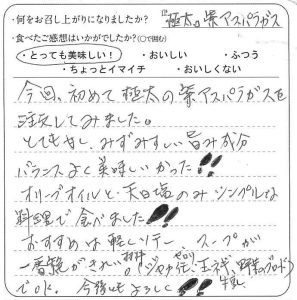 ・何をお召し上がりになりましたか? 『極太』紫アスパラガス
・食べたご感想はいかがでしたか?(○で囲む)
・とっても美味しい! ・おいしい ・ふつう
・ちょっとイマイチ ・おいしくない
今回、初めて極太の紫アスパラガスを
注文してみました。
とても甘し、みずみずしい旨み成分
バランスよく美味しかった!!
オリーブオイルと天日塩のみシンプルな
料理で食べました!!
おすすめは軽くソテー、スープが
一番 がきれい。材料 セロリ 玉ネギ、野菜のブロード
でOK. 今後もよろしく!! 牛乳